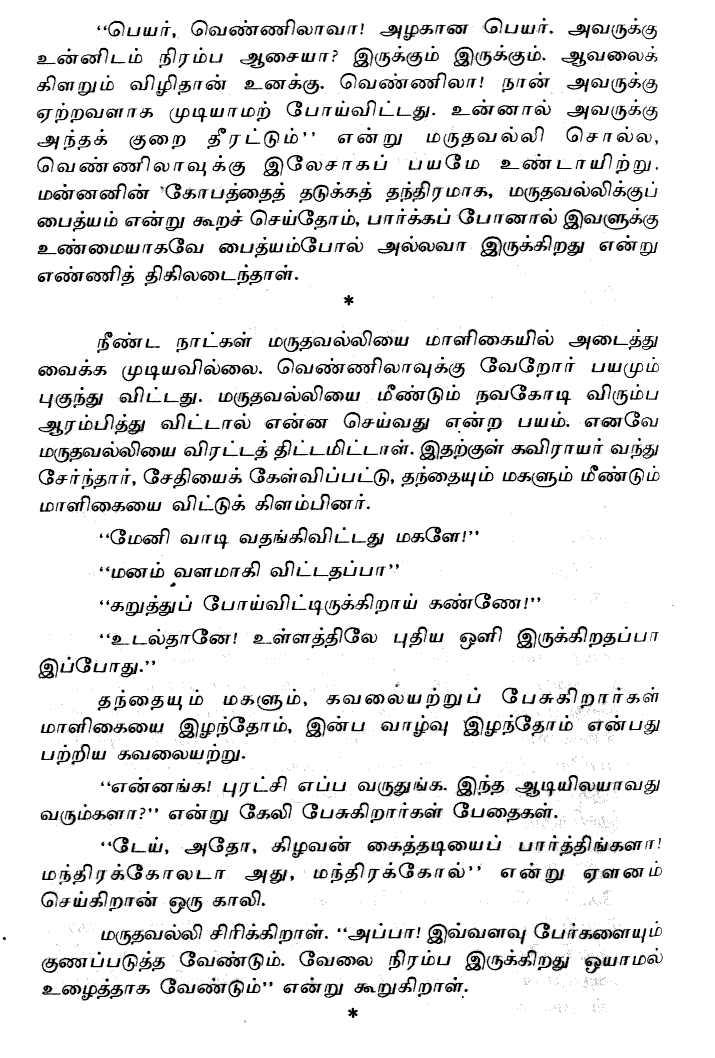 “பெயர், வெண்ணிலாவா! அழகான பெயர். அவருக்கு
உன்னிடம் நிரம்ப ஆசையா? இருக்கும் இருக்கும். ஆவலைக்
கிளறும் விழிதான் உனக்கு. வெண்ணிலா! நான் அவருக்கு
ஏற்றவளாக முடியாமற் போய்விட்டது. உன்னால் அவருக்கு
அந்தக் குறை தீரட்டும்” என்று மருதவல்லி சொல்ல,
வெண்ணிலாவுக்கு இலேசாகப் பயமே உண்டாயிற்று.
மன்னனின் கோபத்தைத் தடுக்கத் தந்திரமாக, மருதவல்லிக்குப்
பைத்யம் என்று கூறச் செய்தோம், பார்க்கப் போனால் இவளுக்கு
உண்மையாகவே பைத்யம்போல் அல்லவா இருக்கிறது என்று
எண்ணித் திகிலடைந்தாள்.
*
நீண்ட நாட்கள் மருதவல்லியை மாளிகையில் அடைத்து
வைக்க முடியவில்லை. வெண்ணிலாவுக்கு வேறோர் பயமும்
புகுந்து விட்டது. மருதவல்லியை மீண்டும் நவகோடி விரும்ப
ஆரம்பித்து விட்டால் என்ன செய்வது என்ற பயம். எனவே
மருதவல்லியை விரட்டத் திட்டமிட்டாள். இதற்குள் கவிராயர் வந்து
சேர்ந்தார், சேதியைக் கேள்விப்பட்டு, தந்தையும் மகளும் மீண்டும்
மாளிகையை விட்டுக் கிளம்பினர்.
“மேனி வாடி வதங்கிவிட்டது மகளே!”
“மனம் வளமாகி விட்டதப்பா”
“கறுத்துப் போய்விட்டிருக்கிறாய் கண்ணே!”
“உடல்தானே! உள்ளத்திலே புதிய ஒளி இருக்கிறதப்பா
இப்போது.”
தந்தையும் மகளும், கவலையற்றுப் பேசுகிறார்கள்
மாளிகையை இழந்தோம், இன்ப வாழ்வு இழந்தோம் என்பது
பற்றிய கவலையற்று.
“என்னங்க! புரட்சி எப்ப வருதுங்க. இந்த ஆடியிலயாவது
வரும்களா?” என்று கேலி பேசுகிறார்கள் பேதைகள்.
“டேய், அதோ, கிழவன் கைத்தடியைப் பார்த்திங்களா!
மந்திரக்கோலடா அது, மந்திரக்கோல்” என்று ஏளனம்
செய்கிறான் ஒரு காலி.
மருதவல்லி சிரிக்கிறாள். “அப்பா! இவ்வளவு பேர்களையும்
குணப்படுத்த வேண்டும். வேலை நிரம்ப இருக்கிறது ஒயாமல்
உழைத்தாக வேண்டும்” என்று கூறுகிறாள்.
*